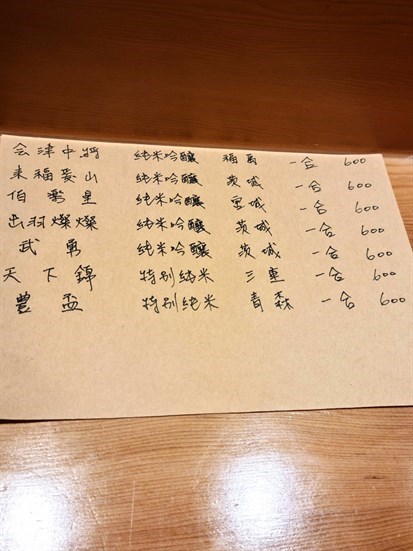 会津中将 純米吟醸 福島 一合 600
来福愛山 純米吟醸 茨城 一合 600
伯楽星 純米吟醸 宮城 一合 600
出羽燦燦 純米吟醸 茨城 一合 600
武勇 純米吟醸 茨城 一合 600
天下錦 特別純米 三重 一合 600
豊盃 特別純米 青森 一合 600